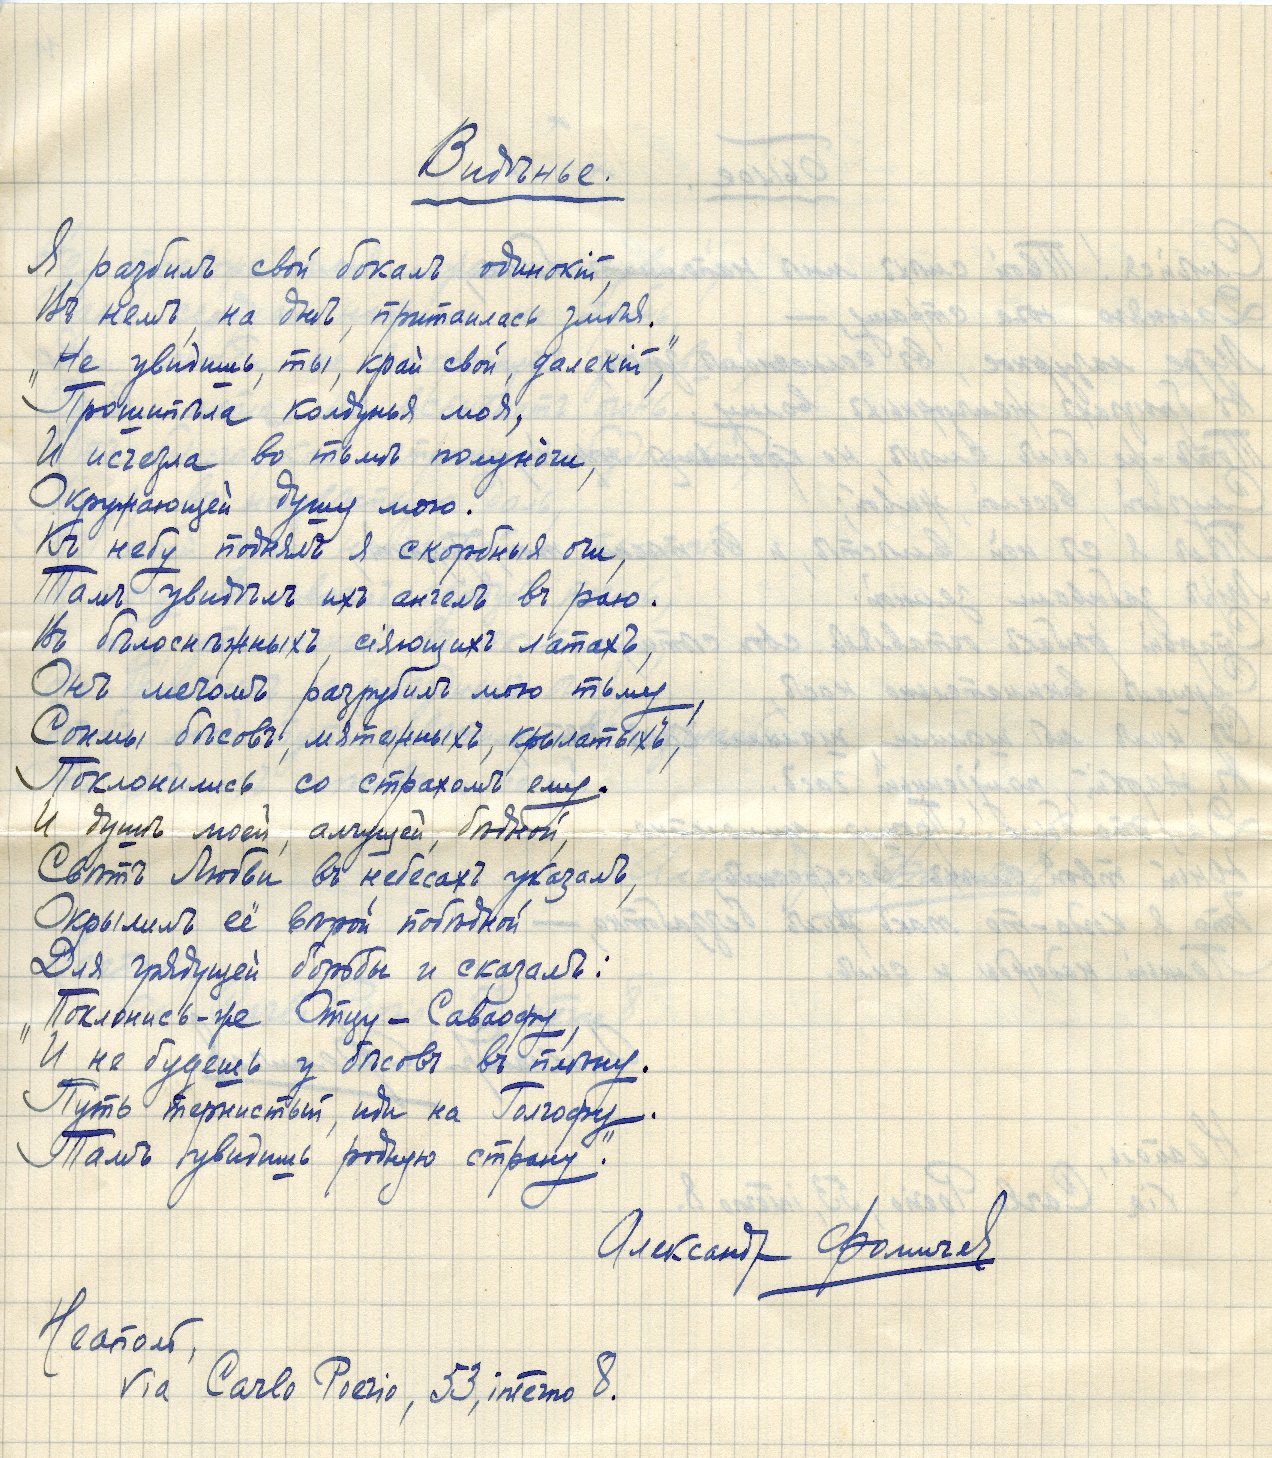 Видѣнье.
Я разбилъ свой бокалъ одинокій,
Въ немъ, на днѣ, притаилась змѣя.
„Не увидишь, ты, край свой, далекій",
Прошипѣла колдунья моя,
И исчезла во тьмѣ полуночи,
Окружающей душу мою.
Къ небу поднялъ я скорбныя очи,
Тамъ увидѣлъ ихъ ангелъ въ раю.
Въ бѣлоснѣжныхъ, сіяющихъ латахъ,
Онъ мечомъ разрубилъ мою тьму,
Сонмы бѣсовъ, мятежныхъ, крылатыхъ,
Поклонились со страхомъ ему.
И душѣ моей, алчущей, бѣдной,
Свѣтъ Любви въ небесахъ указалъ,
Окрылилъ её вѣрой побѣдной
Для грядущей борьбы и сказалъ:
„Поклонись-же Отцу – Саваофу,
И не будешь у бѣсовъ въ плѣну.
Путь тернистый, иди на Голгофу.
Тамъ увидишь родную страну".
Александръ Фомичевъ
Неаполь,
Via Carlo Poerio, 53, interno 8.